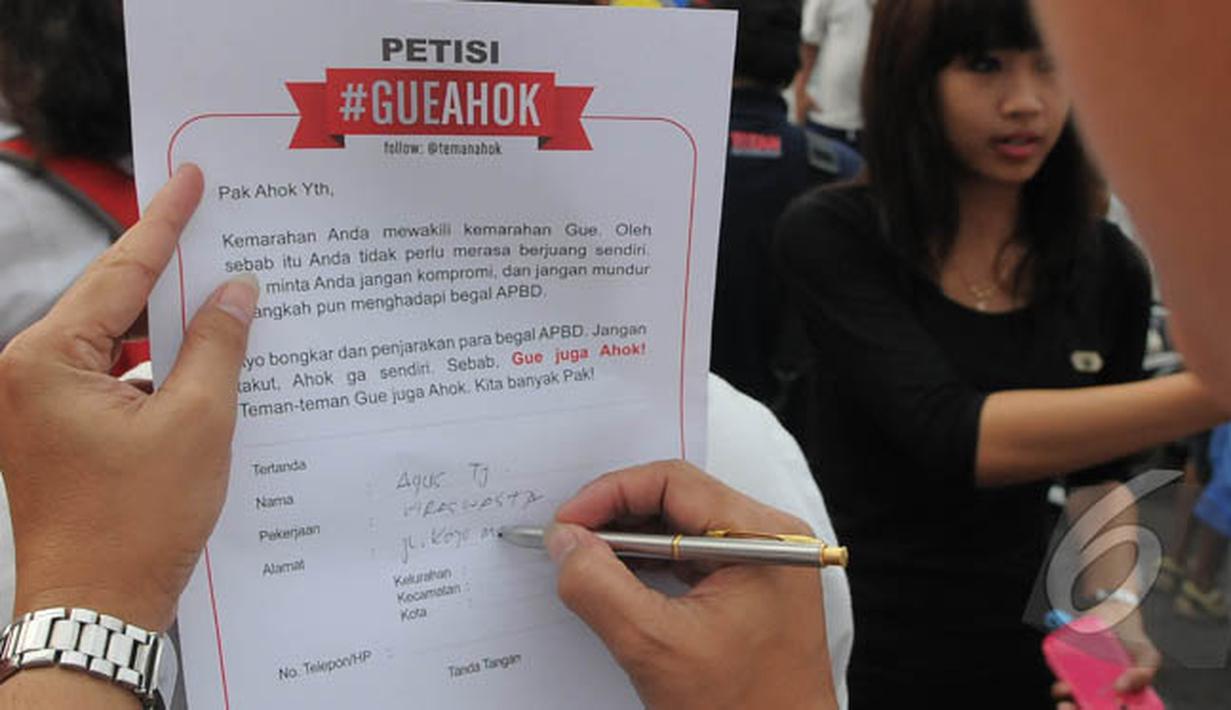 PETISI
#GUEAHOK
follow: @temanahok
Pak Ahok Yth,
Kemarahan Anda mewakili kemarahan Gue. Oleh
sebab itu Anda tidak perlu merasa berjuang sendiri.
minta Anda jangan kompromi, dan jangan mundur
angkah pun menghadapi begal APBD.
yo bongkar dan penjarakan para begal APBD. Jangan
takut, Ahok ga sendiri. Sebab, Gue juga Ahok!
Teman-teman Gue juga Ahok. Kita banyak Pak!
Tertanda
Nama : Agus Tj
Pekerjaan :
Alamat : jl. Koje
Kelurahan :
Kecamatan :
Kota :
No. Telepon/HP :
Tanda Tangan
6